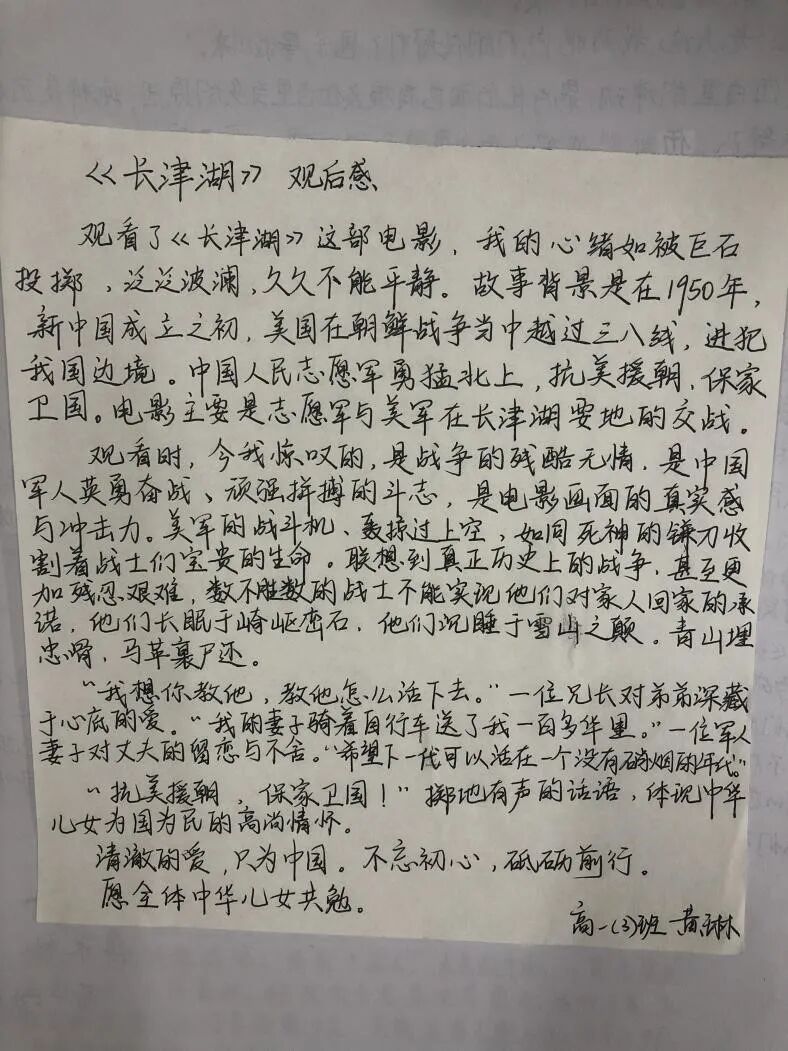 《长津湖》 观后感
观看了《长津湖》这部电影，我的心绪如被巨石
投掷，泛泛波澜，久久不能平静。故事背景是在1950年，
新中国成立之初，美国在朝鲜战争当中越过三八线，进犯
我国边境。中国人民志愿军勇猛北上，抗美援朝，保家
卫国。电影主要是志愿军与美军在长津湖要地的交战。
观看时，令我惊叹的，是战争的残酷无情，是中国
军人英勇奋战、顽强拼搏的斗志，是电影画面的真实感
与冲击力。美军的战斗机、轰掠过上空，如同死神的镰刀收
割着战士们宝贵的生命。联想到真正历史上的战争，甚至更
加残忍艰难，数不胜数的战士不能实现他们对家人回家的承
诺，他们长眠于崎岖峦石，他们沉睡于雪山之颠。青山埋
忠骨，马革裹尸还。
“我想你教他，教他怎么活下去。”一位兄长对弟弟深藏
于心底的爱。“我的妻子骑着自行车送了我一百多华里。”一位军人
妻子对丈夫的留恋与不舍。“希望下一代可以活在一个没有硝烟的年代。”
“抗美援朝，保家卫国！”掷地有声的话语，体现中华
儿女为国为民的高尚情怀。
清澈的爱，只为中国。不忘初心，砥砺前行。
愿全体中华儿女共勉。
高一(3)班 黄琳